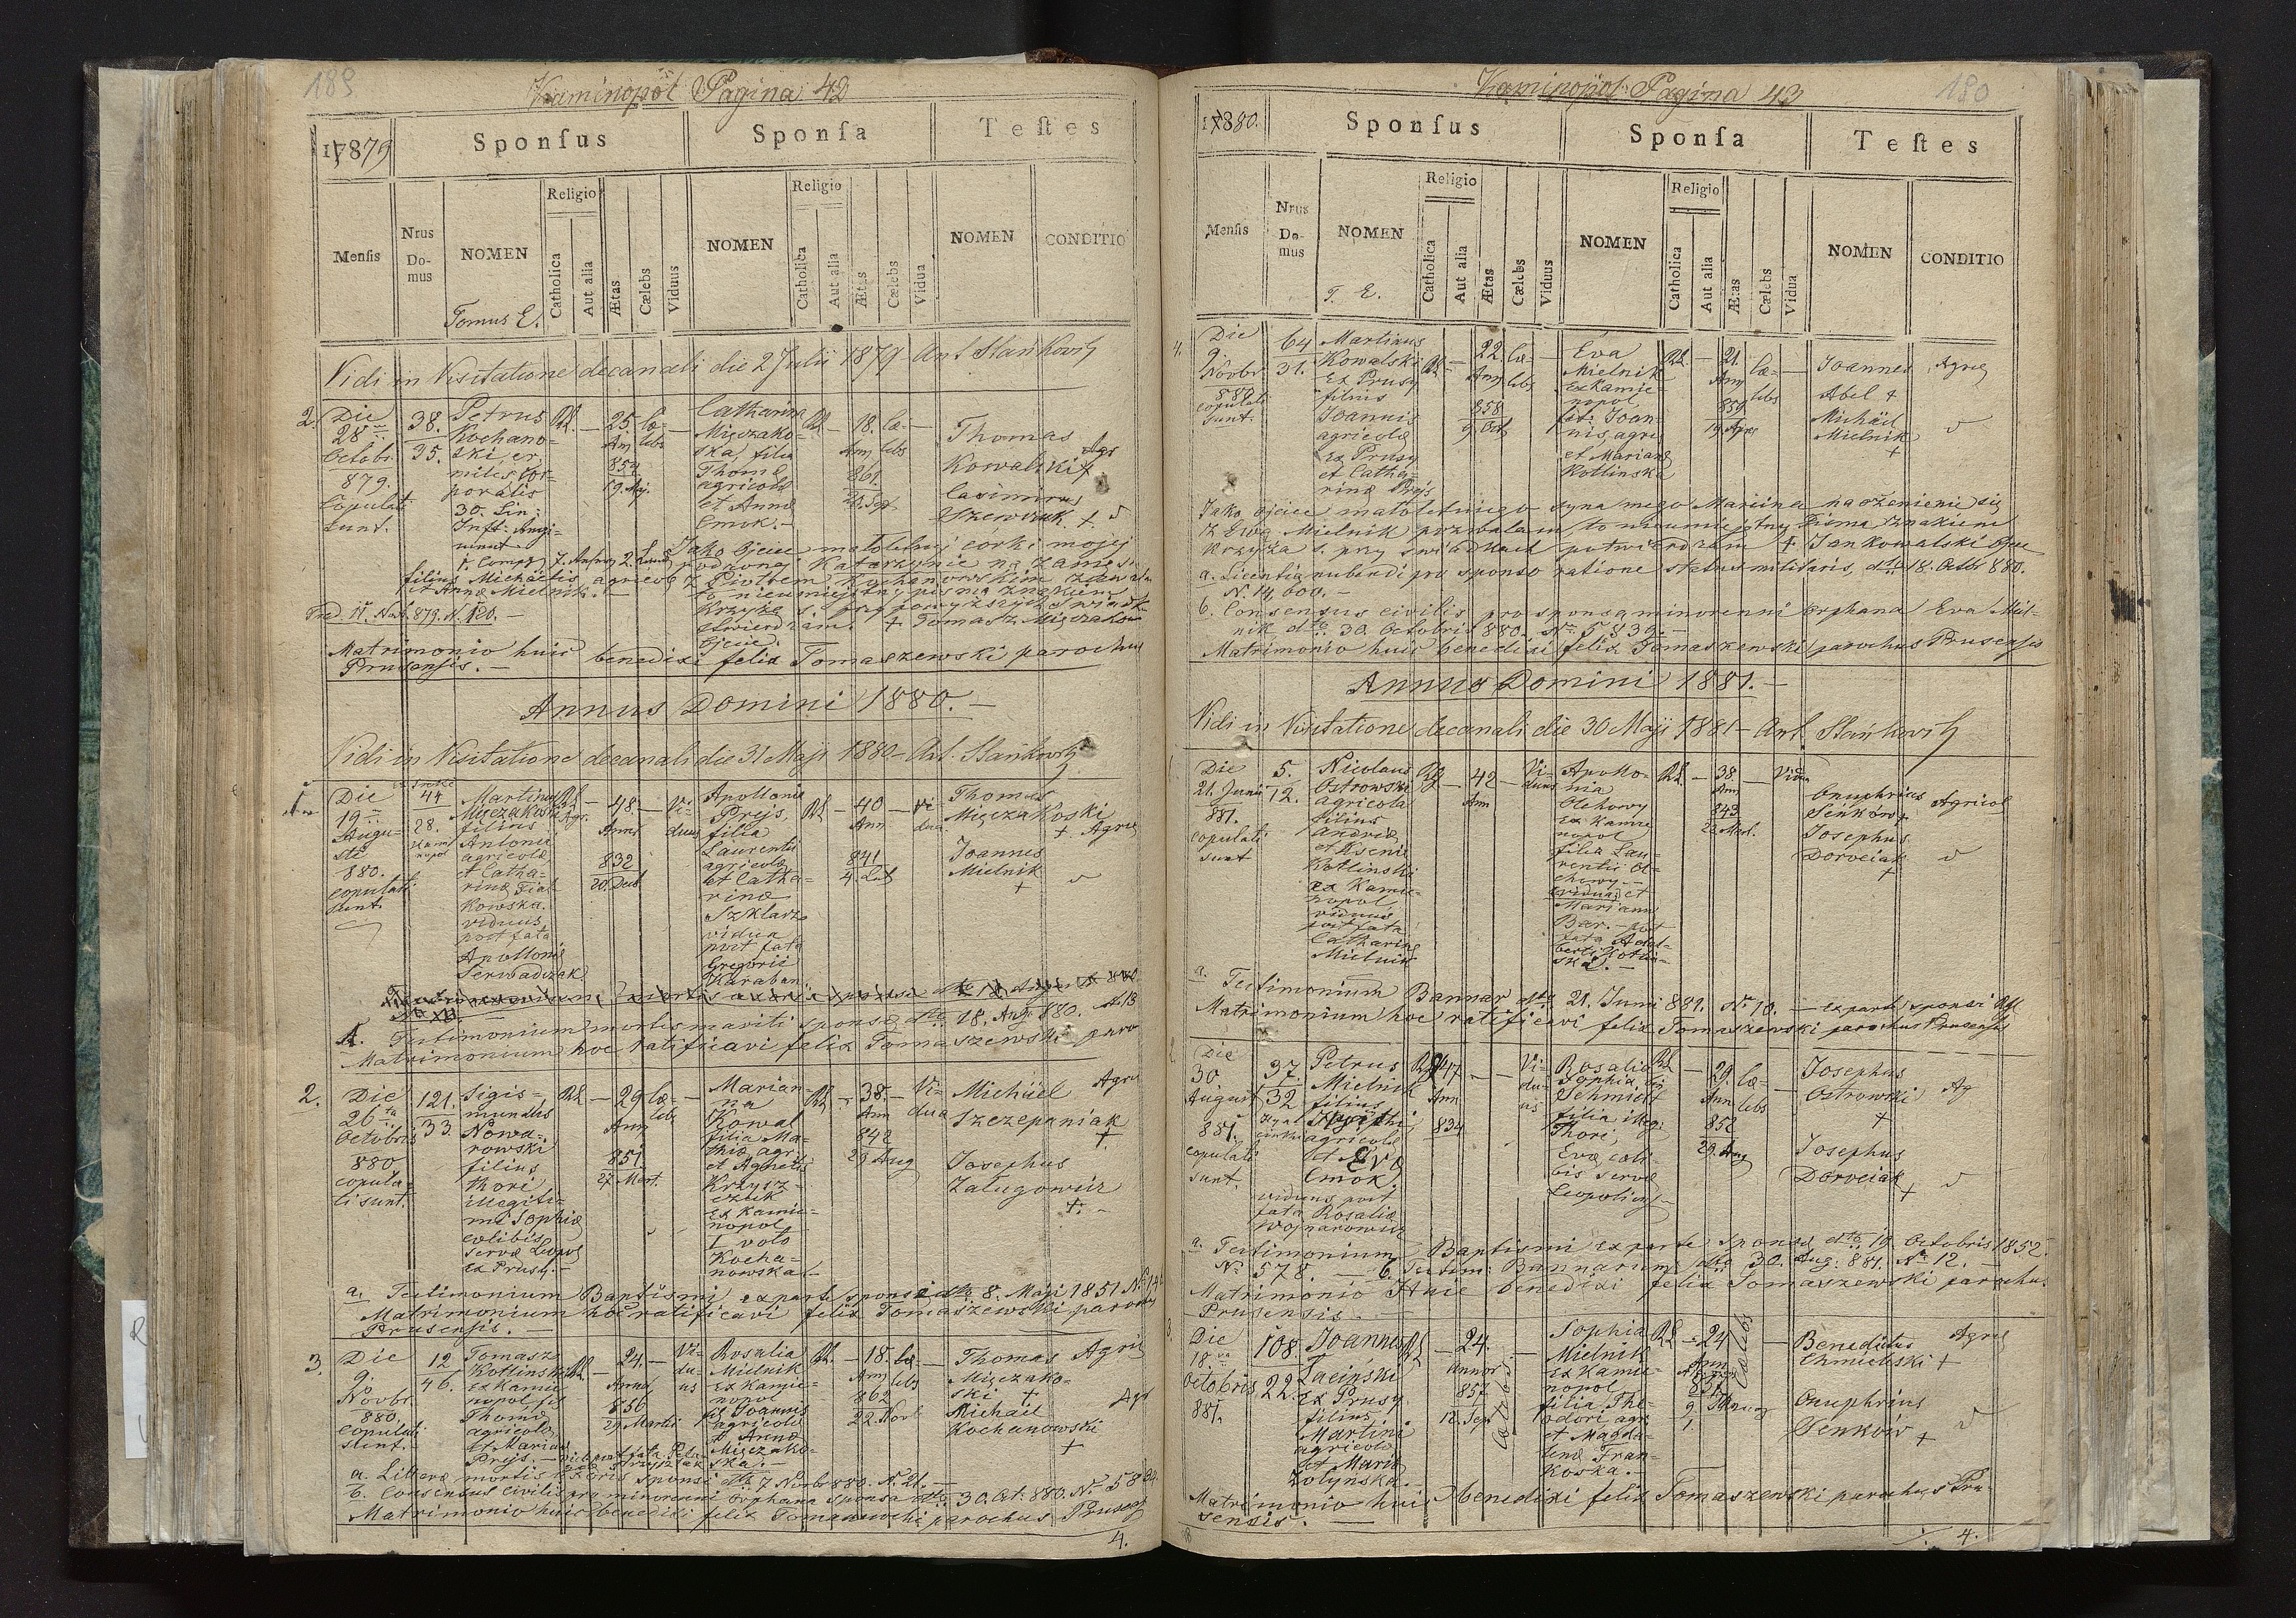 189
Kaminopol Pagina 42
17879
Sponsus
Sponsa
Testes
Mensis
Nrus Do-mus
NOMEN
Religio
Catholica
Aut alia
Ætas
Cælebs
Viduus
NOMEN
Religio
Catholica
Aut alia
Ætas
Cælebs
Vidua
NOMEN
CONDITIO
Tomus E.
Vidi in Visitatione decanali die 2 Julii 1879
2. Die
28
Octobr.
879.
Copulati
sunt.
38.
35.
Petrus
Kochano-
ski, ex
miles cor-
poralis
30. Lin:
Inft:
RL
25.
Ann
854
19. Maj.
cæ-
lebs
Catharina
Mięczako-
ska, filia
Thomæ
agricolæ
et Annæ
Cmok.
RL
18.
Ann
861
25. Sept
cæ-
lebs
Thomas
Kowalski +
Casimirus
Szewczuk. +
Agr
filius Michaelis agricolæ
et Annæ Mielnik.
Jako Ojciec małoletniej corki mojej
Katarzynie na zamęs
z Piotrem Kochanowskim
to nieumiejętny pisma znakiem
Krzyża s. przy powyższych swiad
stwierdzam. + Tomasz Mięczakow
Ojciec.
Matrimonio huic benedixi felix Tomaszewski parochus
Prusensis.
Annus Domini 1880.
Vidi in Visitatione decanali die 31 Maji 1880
1.
Die
19
Augu-
sti
880.
copulati
sunt
44
28.
Martinus
Mięczakoski
filius
Antonii
agricolæ
et Catha-
rinæ Fial-
kowska.
viduus
post fata
Apolloniæ
RL
48.
Anni
832
20. Decb
Vi-
duus
Apollonia
Prejs,
filia
Laurentii
agricolæ
et Catha-
rinæ
Szklarz
vidua
post fata
Gregorii
Karaban
RL
40
Ann
841
Vi-
dua
Thomas
Mięczakoski
+ Agric
Joannes
Mielnik
+
1. Testimonium mortis mariti sponsæ dto 18. Aug. 880.
Matrimonium hoc ratificavi felix Tomaszewski paro
2.
Die
26ta
Octobris
880
copula-
ti sunt.
121.
33.
Sigis-
mundus
Nowa-
rowski
filius
thori
illegiti-
mi Sophiæ
cælibis
servæ Leopol
Ex Prusy.
RL
29
Ann
851
27 Mart.
cæ-
lebs
Marian-
na
Kowal
filia Ma-
thiæ agr.
et Agnetis
Krzysz-
czuk
Ex Kamie-
nopol
1 voto
Kocha-
nowska
RL
38.
Ann
842
29 Aug
Vi-
dua
Michäel
Szczepaniak
+
Josephus
Zalugowicz
+.
Agric
a. Testimonium Baptismi ex parte sponsi dto 8. Maji 1851
Matrimonium hoc ratificavi felix Tomaszewski parochus
Prusensis.
3.
Die
9.
Novbr.
880.
copulati
sunt.
12
46.
Tomasz
Kotlinski
Ex Kamie-
nopol, fil
Thomæ
agricolæ
et Mariæ
Prejs.
RL
24.
Anni
856
29 Martii
Vi-
du-
us
Rosalia
Mielnik
Ex Kamie-
nopol
fil. Joannis
agricolæ
et Annæ
Mięczako-
ska.
RL
18.
Ann
862
22. Novb
cæ-
lebs
Thomas
Mięczako-
ski +
Michäel
Kochanowski
+
Agric
Agr
a. Litteræ mortis uxoris sponsi dto 7 Novbr 880. N. 21.
b. Consensus civilis pro minorenni orphana sponsa dto 30. Oct. 880. No 5834.
Matrimonio huic benedixi felix Tomaszewski parochus Prusens
4.
Kaminopol Pagina 43
180
17880.
Sponsus
Sponsa
Testes
Mensis
Nrus Do-mus
NOMEN
Religio
Catholica
Aut alia
Ætas
Cælebs
Viduus
NOMEN
Religio
Catholica
Aut alia
Ætas
Cælebs
Vidua
NOMEN
CONDITIO
T. E.
4.
Die
9
Novbr
880
copulati
sunt.
64
31.
Martinus
Kowalski
Ex Prusy
filius
Joannis
agricolæ
Ex Prusy
et Catha-
rinæ Prejs
RL
22.
Ann
858
9 Oct
cæ-
lebs
Eva
Mielnik
Ex Kamie-
nopol,
fil: Joan-
nis, agric
et Marianæ
Kotlinska
RL
21.
Ann
859
cæ-
lebs
Joannes
Abel +
Michäel
Mielnik
+
Agric
Jako ojciec małoletniego syna mego Marcina na ożenienie się
z Ewą Mielnik pozwalam to nieumiejętny Pisma znakiem
Krzyża s. przy swiadkach potwierdzam + Jan Kowalski ojciec
a. Licentia nubendi pro sponso ratione status militaris, dto 18. Octbr 880.
N. 14,600.
b. Consensus civilis pro sponsa minorenni orphana Eva Miel-
nik dto 30. Octobris 880. No 5839.
Matrimonio huic benedixi felix Tomaszewski parochus Prusensis
Annus Domini 1881.
Vidi in Visitatione decanali die 30 Maji 1881
Die
21. Junii
881.
copulati
sunt
5.
12.
Nicolaus
Ostrowski
agricola
filius
Andreæ
et Kseniæ
Kotlinski
ex Kamie-
nopol
viduus
post fata
Catharinæ
Mielnik
42
Ann
Vi-
duus
Apollo-
nia
Olchowy
Ex Kamie
nopol
filia Lau-
rentii Ol-
chowy
vidua et
Mariannæ
Bar. post
fata Adal-
berti Kotlin-
ska.
RL
38.
Ann
843
Vidua
Onuphrius
Senków +
Josephus
Dorveiak
+
Agricol
a.
Testimonium Bannor dto 21. Junii 881. No 10. ex parte sponsi
Matrimonium hoc ratificavi felix Tomaszewski parochus Prusensis
Die
30
August
881.
copulati
sunt.
37.
32
Petrus
Mielnik
filius
agricolæ
et
Evæ
Cmok,
viduus post
fata Rosaliæ
Wojnarowicz
RL
47
Ann
834
Vi-
du-
us
Rosalia
Sophia
Schmidt
filia illegi
thori,
Evæ cæli-
bis servæ
Leopolien
RL
29.
Ann
852
29. Aug
cæ-
lebs
Josephus
Ostrowski
+
Josephus
Dorveiak
+
Ag
a. Testimonium Baptismi ex parte sponsæ dto 19. Octobris 1852.
No 578. b. Testim: Bannorum dto 30. Aug: 881. No 12.
Matrimonio Huic benedixi felix Tomaszewski parochu
Prusensis.
3.
Die
18.
Octobris
881.
108
22.
Joannes
Laciński
Ex Prusy
filius
Martini
agricolæ
et Mariæ
Zołyńska.
RL
24.
annor
857
12. Sept
Cælebs
Sophia
Mielnik
Ex Kamie-
nopol
filia The-
odori, agr.
et Magda-
lenæ Fran-
koska.
RL
24
Ann
Cælebs
Benedictus
Chmielski +
Onuphrius
Senków +
Agric
Matrimonio huic benedixi felix Tomaszewski parochus Pru-
sensis.
4.